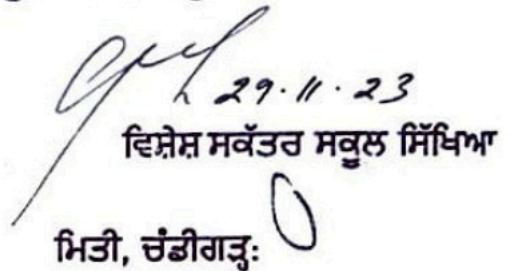 29.11.23
ਵਿਸ਼ੇਸ਼ ਸਕੱਤਰ ਸਕੂਲ ਸਿੱਖਿਆ
ਮਿਤੀ, ਚੰਡੀਗੜ੍ਹ: